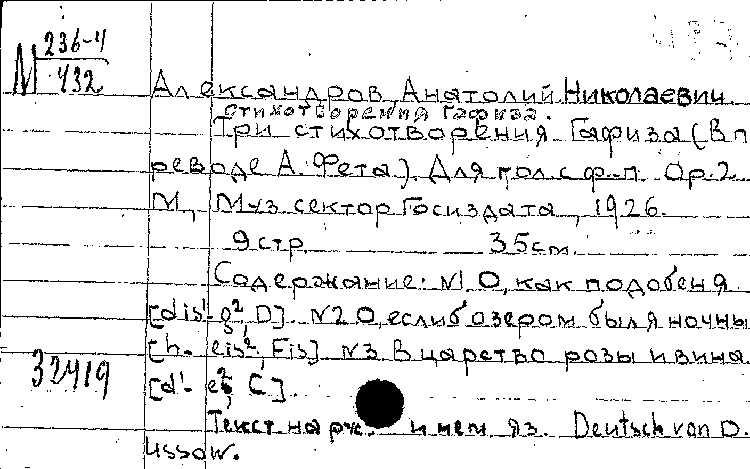 М 236-4
432
Александров, Анатолий Николаевич
Стихотворения Гафиза.
Три стихотворения Гафиза (В п
реводе А. Фета). Для гол с ф-п. Op. 2
М., Муз. сектор Госиздата, 1926.
9 стр. 35 см.
Содержание: №1 О, как подобен я
[dis¹-g², D]. №2 О, если б озером был я ночны
[h-eis², Fis] №3 В царство розы и вина
32419
[d¹-e², C].
Текст на рус. и нем яз. Deutsch von D.
Ussow.